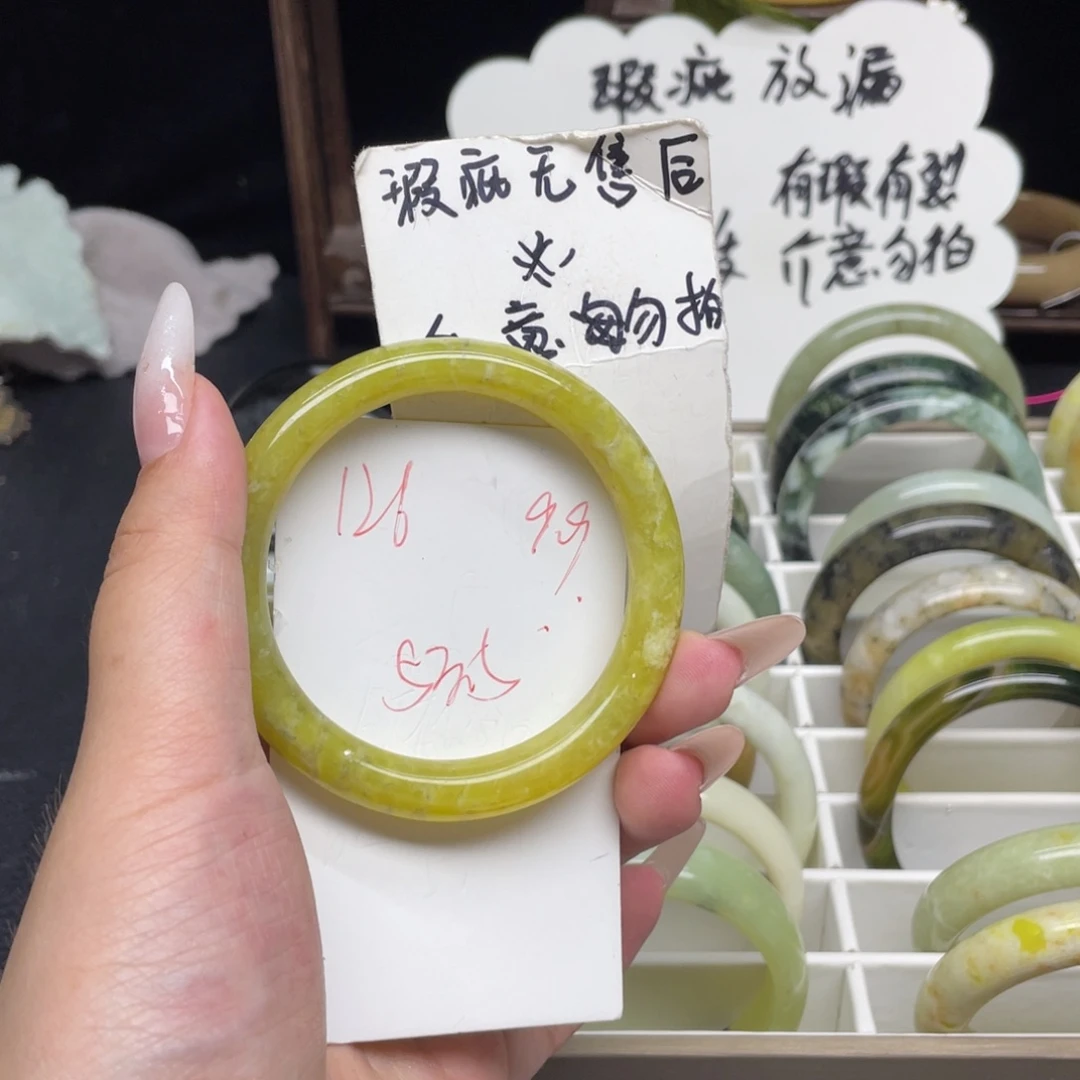 瑕疵放漏
有瑕有裂
介意勿拍
瑕疵无售后
意 勿拍
126 99.
57.5